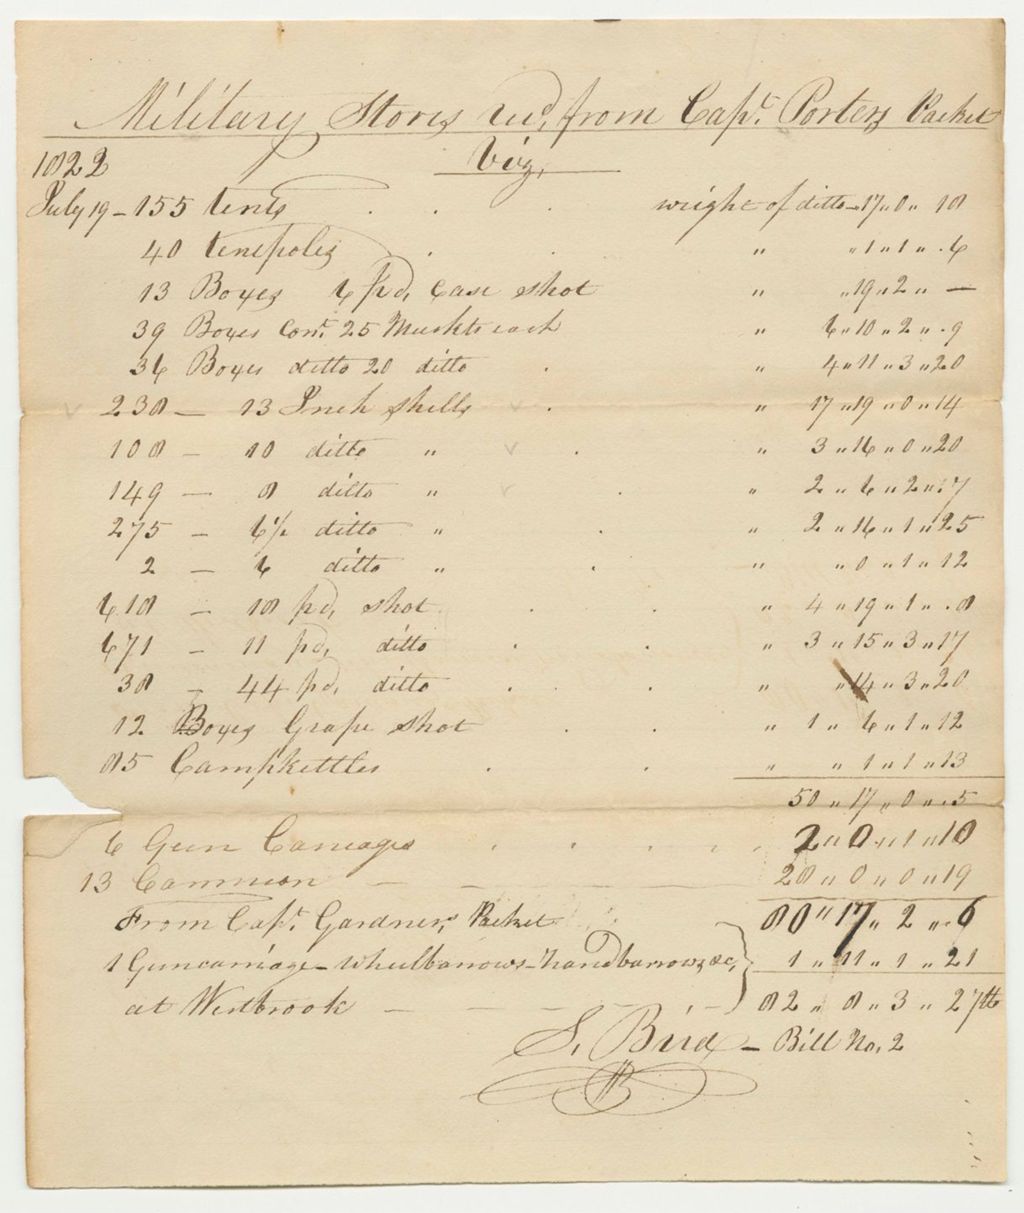 Military Stores recd, from Capt. Porters Packet
1822 Viz,
July 19 - 155 tents . . . weight of ditto - 17 " 0 " 18
40 tentpoles . . " " 1 " 1 " . 6
13 Boxes 6 pd, Case shot " " 19 " 2 " —
39 Boxes Cont. 25 Muskts each " 6 " 10 " 2 " . 9
36 Boxes ditto 20 ditto . " 4 " 11 " 3 " 20
238 — 13 Inch shells . " 17 " 19 " 0 " 14
108 — 10 ditto " . " 3 " 16 " 0 " 20
149 — 8 ditto " . " 2 " 6 " 2 " . 7
275 — 6½ ditto " . " 2 " 16 " 1 " 25
2 — 6 ditto " . " " 0 " 1 " 12
618 — 18 pd, shot . . " 4 " 19 " 1 " . 8
671 — 11 pd, ditto . . " 3 " 15 " 3 " 17
38 — 44 pd, ditto . . . " " 14 " 3 " 20
12 Boxes Grape shot . . " 1 " 6 " 1 " 12
85 Campkettles . . " " 1 " 1 " 13
50 " 17 " 0 " . 5
6 Gun Carriages . . . . . . 2 " 0 " 1 " 18
13 Cannnon — — — 28 " 0 " 0 " 19
From Capt. Gardners, Packet 80 " 17 " 2 " . 6
1 Guncarriage - wheelbarrows - handbarrows, &c, 1 " 11 " 1 " 21
at Westbrook — — — — — 82 " 8 " 3 " 27 lb
S. Bird — Bill No, 2
B